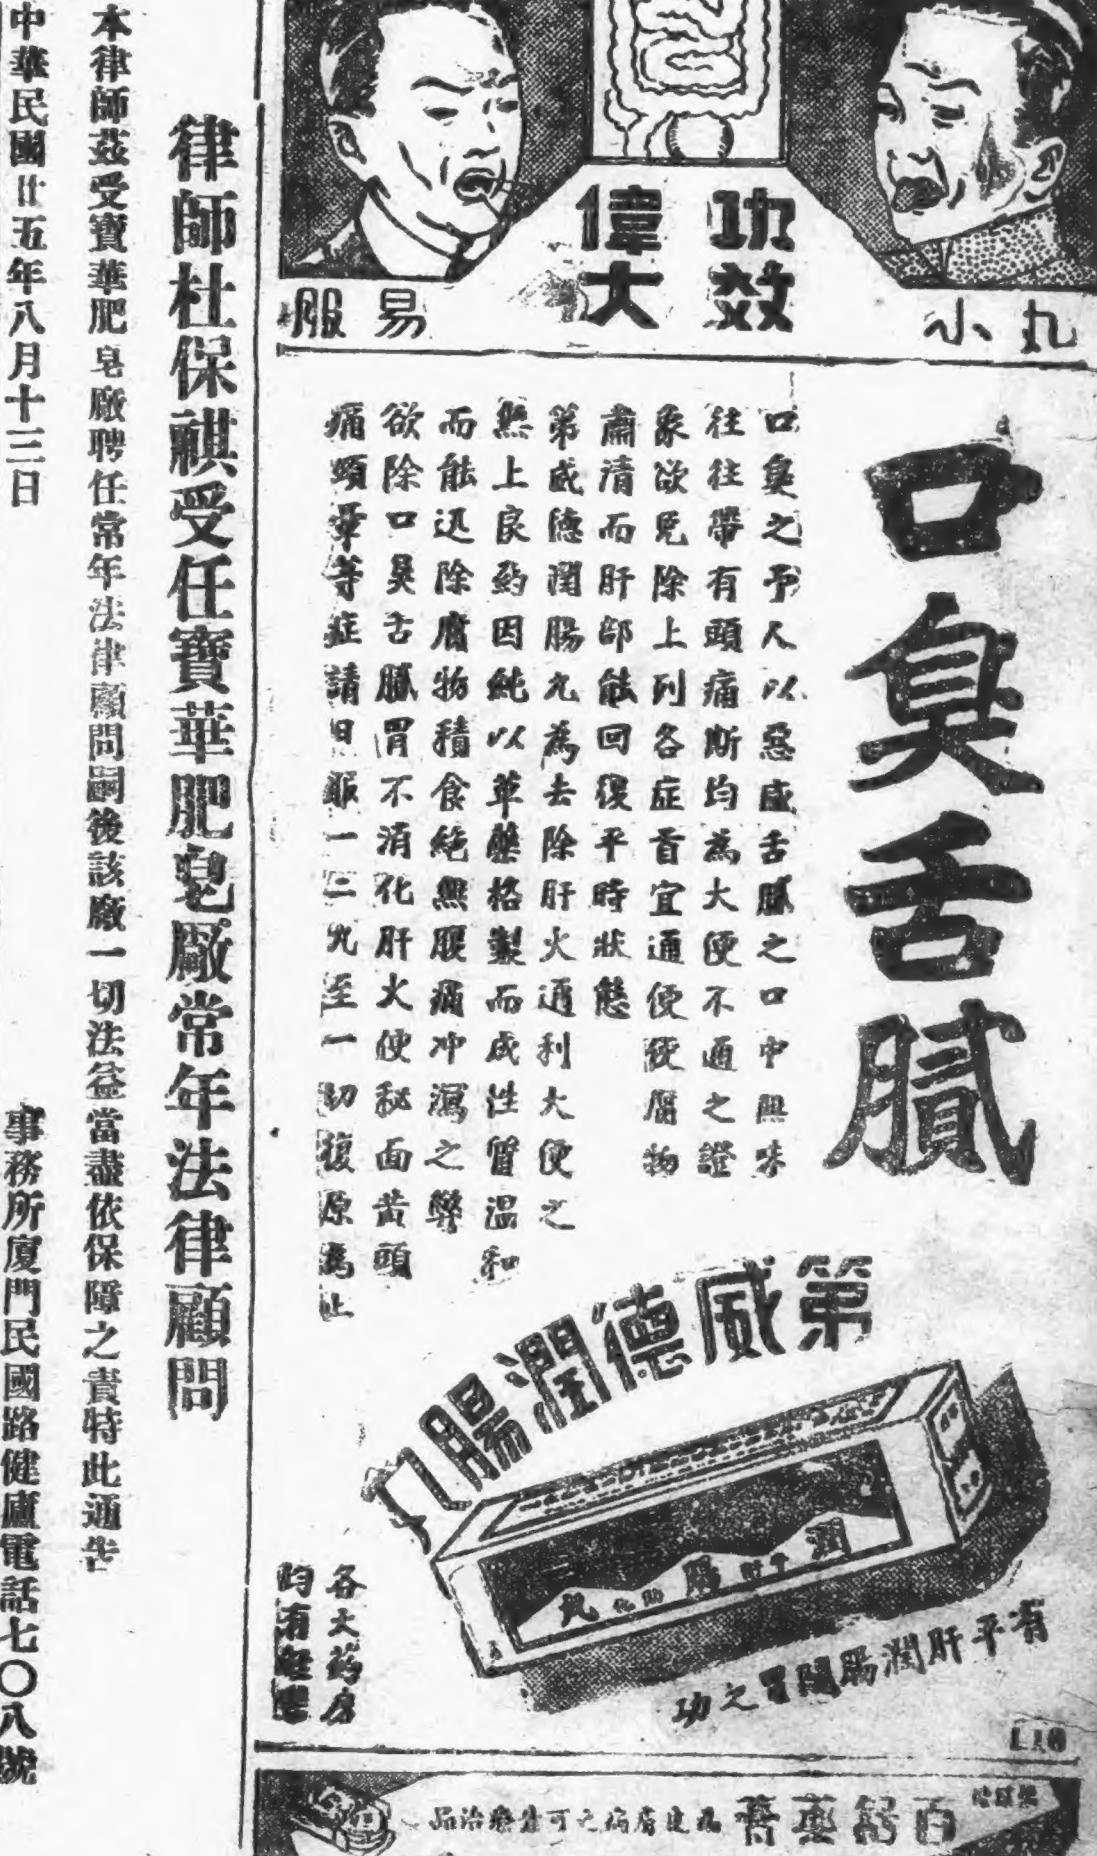 丸小
功效
偉大
易服
口臭舌膩
口臭之予人以惡感舌膩之口中無味
往往帶有頭痛斯均為大便不通之證
象欲免除上列各症首宜通便使腐物
肅清而肝部能回復平時狀態
第威德潤腸丸為去除肝火通利大便之
無上良药因純以草藥格製而成性質温和
而能迅除腐物積食絶無腹痛冲瀉之弊
欲除口臭舌膩胃不消化肝火便秘面黃頭
痛頭暈等症請日服一二丸至一切復原為止
第威德潤腸丸
潤腸丸
有平肝潤腸開胃之功
各大葯房
均有經售
百齡藥膏
為皮膚病之可靠療治品
律師杜保祺受任寶華肥皂廠常年法律顧問
本律師茲受寶華肥皂廠聘任常年法律顧問嗣後該廠一切法益當盡依保障之責特此通告
中華民國廿五年八月十三日
事務所廈門民國路健廬電話七〇八號